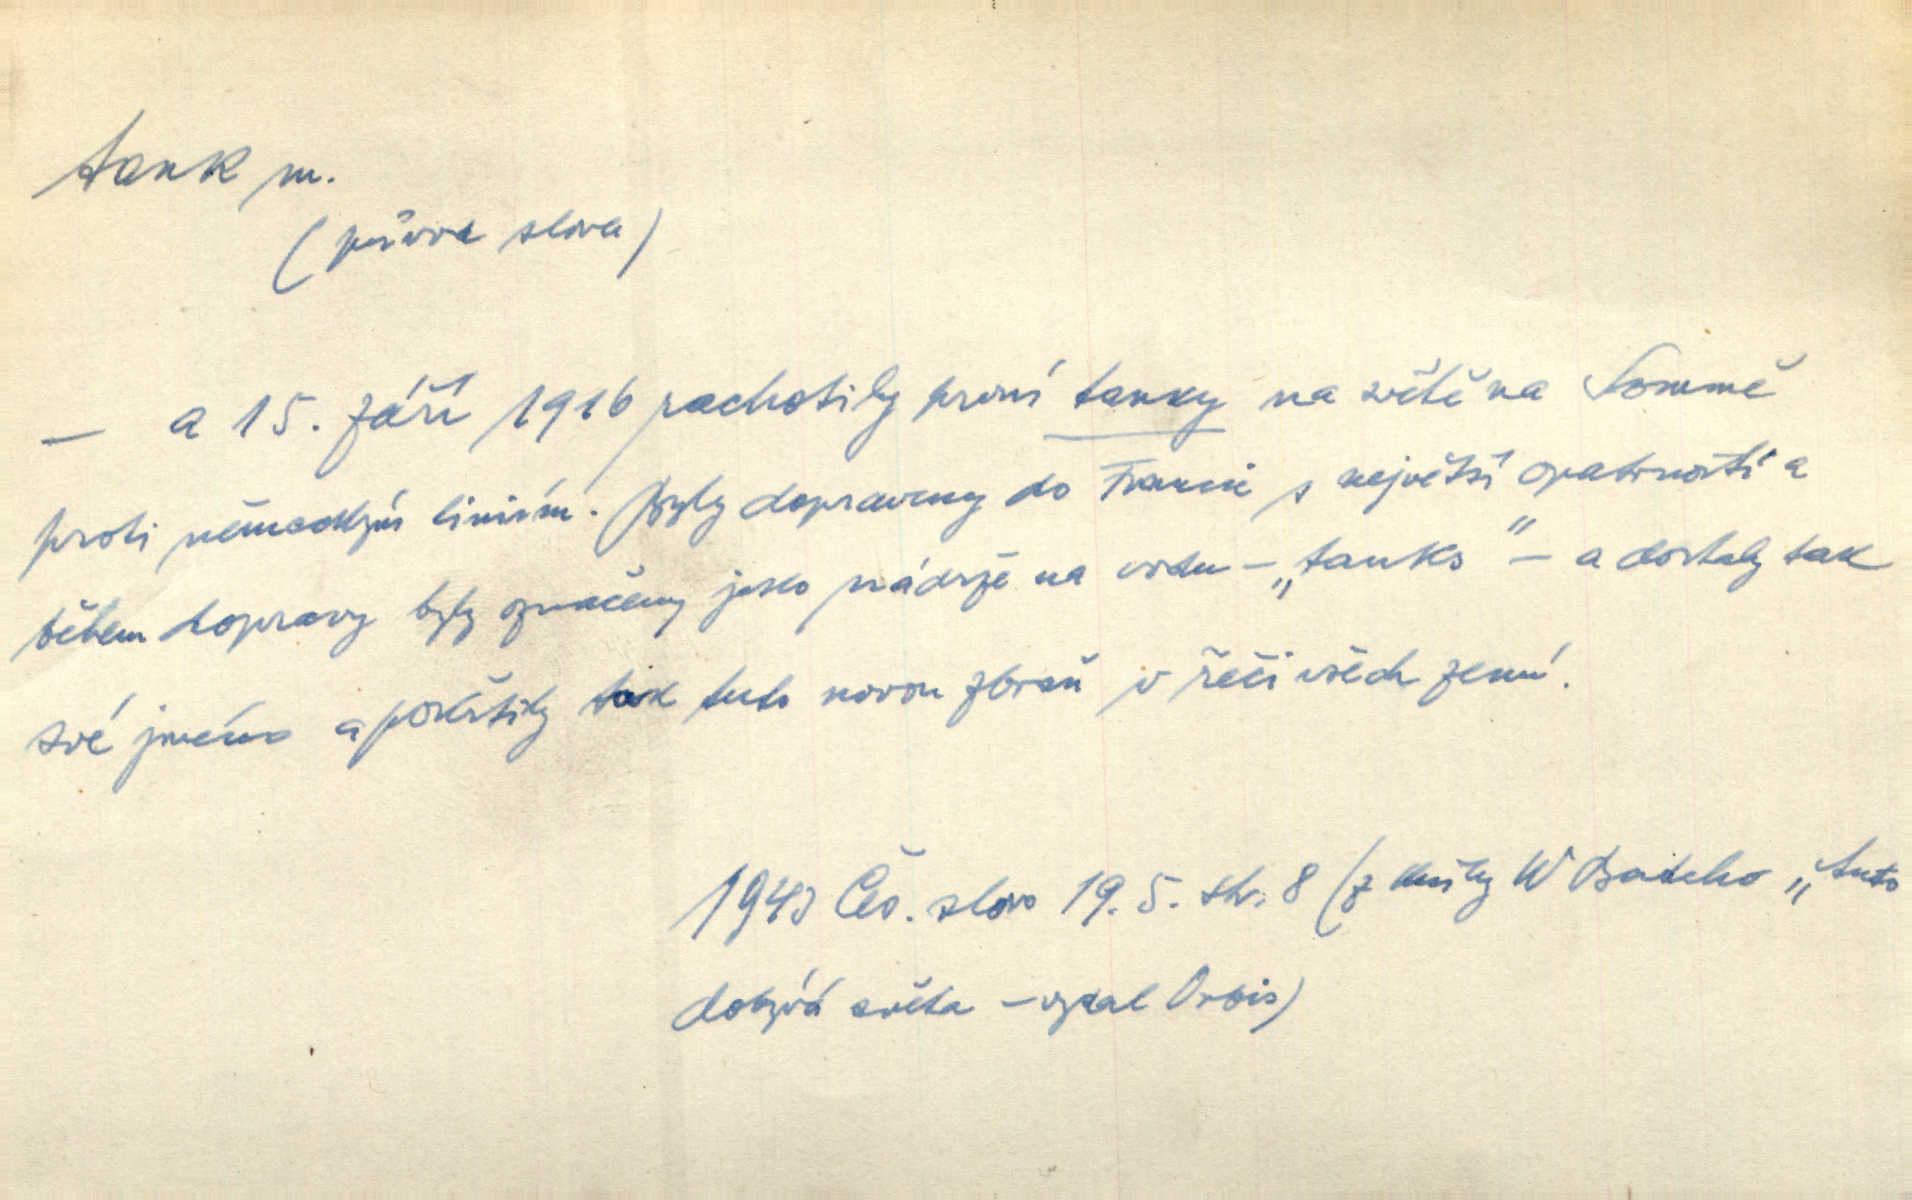 tank m.
(původ slova)
— a 15. září 1916 rachotily první tanky na světě na Sommě
proti německým liniím. Byly dopraveny do Francie s největší opatrností a
během dopravy byly označeny jako nádrže na vodu – „tanks" – a dostaly tak
své jméno a pokřtily tak tuto novou zbraň v řeči všech zemí.
1943 Čes. slovo 19. 5. str. 8 (z knihy W „Auto
dobývá světa – vydal Orbis)